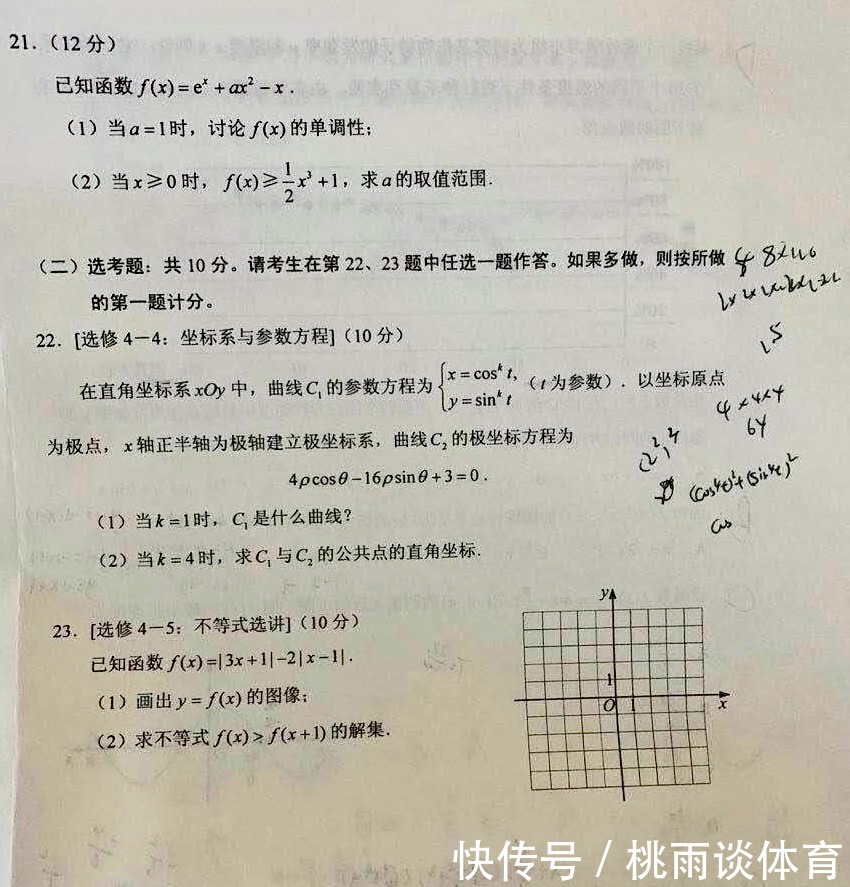 21.（12分）
已知函数 f(x)=eˣ+ax²−x.
（1）当a=1时，讨论f(x)的单调性；
（2）当x≥0时，f(x)≥1/2x³+1，求a的取值范围.
（二）选考题：共10分。请考生在第22、23题中任选一题作答。如果多做，则按所做
的第一题计分。
22. [选修4—4：坐标系与参数方程]（10分）
在直角坐标系xOy中，曲线C₁的参数方程为{x=cosᵏt, y=sinᵏt（t为参数）. 以坐标原点
为极点，x轴正半轴为极轴建立极坐标系，曲线C₂的极坐标方程为
4ρcosθ−16ρsinθ+3=0.
（1）当k=1时，C₁是什么曲线？
（2）当k=4时，求C₁与C₂的公共点的直角坐标.
4×4×4
64
23. [选修4—5：不等式选讲]（10分）
已知函数f(x)=|3x+1|−2|x−1|.
（1）画出y=f(x)的图像；
（2）求不等式f(x)>f(x+1)的解集.
y
1
O 1 x
快传号 / 桃雨谈体育